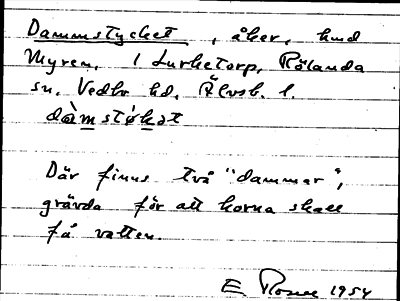 Dammstycket, åker, hmd
Myren, 1 Lurketorp, Rölanda
sn. Vedbo hd, Älvsb. l.
dàmstỳkat
Där finns två "dammar",
grävda för att korna skall
få vatten.
E 1954